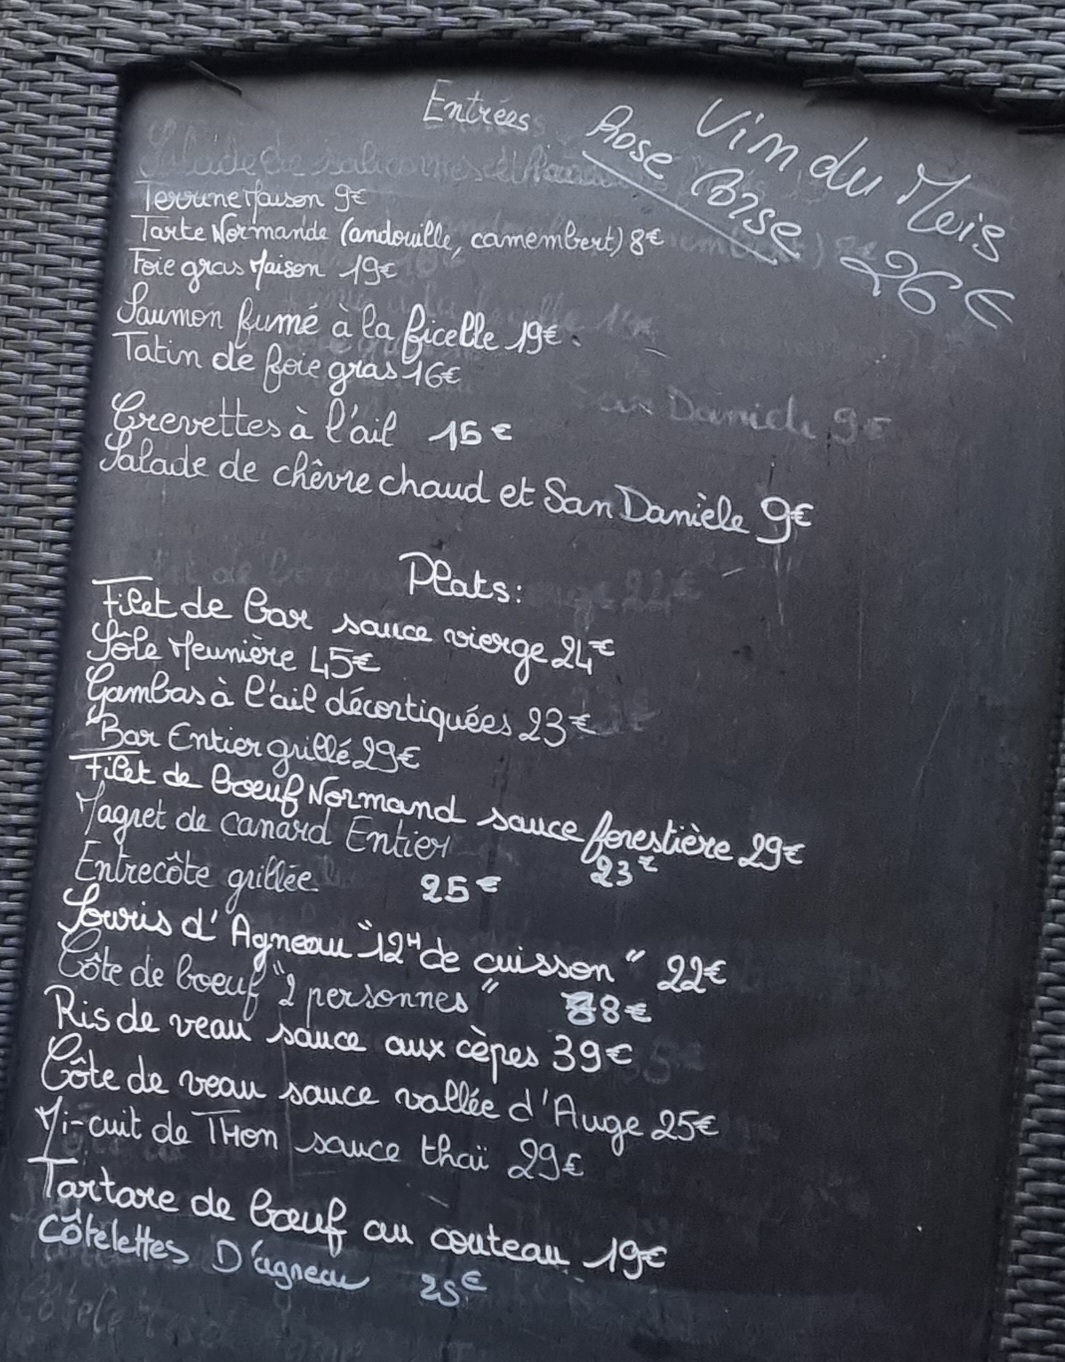 Entrées
Vin du Mois
Rose Corse
26€
Terrine Maison 9€
Tarte Normande (andouille, camembert) 8€
Foie gras Maison 19€
Saumon fumé à la ficelle 19€
Tatin de foie gras 16€
Crevettes à l'ail 15€
Salade de chêvre chaud et San Danièle 9€
Plats:
Filet de Bar sauce vierge 24€
Sôle Meunière 45€
Gambas à l'ail décortiquées 23€
Bar Entier grillé 29€
Filet de Boeuf Normand sauce forestière 29€
Magret de canard Entier 23€
Entrecôte grillée 25€
Souris d'Agneau "12H de cuisson" 22€
Côte de boeuf "2 personnes"
Ris de veau sauce aux cèpes 39€
Côte de veau sauce vallée d'Auge 25€
Mi-cuit de THon sauce thaï 29€
Tartare de boeuf au couteau 19€
Côtelettes D'agneau 25€